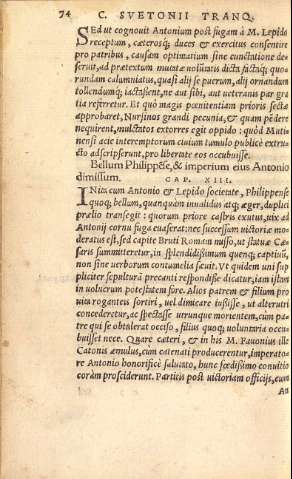 74 C. SVETONII TRANQ.
Sed ut cognouit Antonium post fugam à M. Lepido
receptum, cæterosq; duces & exercitus consentire
pro patribus, causam optimatium sine cunctatione de-
seruit, ad prætextum mutatæ uoluntatis dicta factaq; quo-
rundam calumniatus, quasi alij se puerum, alij ornandum
tollendumq; iactassent, ne aut sibi, aut ueteranis par gra-
tia referretur. Et quò magis pœnitentiam prioris sectæ
approbaret, Nursinos grandi pecunia, & quam pēdere
nequirent, mulctatos extorres egit oppido: quòd Mutin-
nensi acie interemptorum ciuium tumulo publicè extru-
cto adscripserunt, pro libertate eos occubuisse.
Bellum Philippēse, & imperium eius Antonio
dimissum.
CAP. XIII.
INita cum Antonio & Lepido societate, Philippense
quoq; bellum, quanquàm inualidus atq; æger, duplici
prælio transegit: quorum priore castris exutus, uix ad
Antonij cornu fuga euaserat: nec successum uictoriæ mo-
deratus est, sed capite Bruti Romam misso, ut statuæ Cæ-
saris summitteretur, in splendidissimum quenq; captiuū,
non sine uerborum contumelia sæuit. Vt quidem uni sup
pliciter sepulturā precanti respondisse dicatur, iam istam
in uolucrum potestatem fore. Alios patrem & filium pro
uita rogantes sortiri, uel dimicare iussisse, ut alterutri
concederetur, ac spectasse utrunque morientem, cùm pa-
tre qui se obtulerat occiso, filius quoq; uoluntaria occu-
buisset nece. Quare cæteri, & in his M. Fauonius ille
Catonis æmulus, cum catenati producerentur, imperato-
re Antonio honorificè salutato, hunc fœdissimo conuitio
coràm prosciderunt. Partitis post uictoriam officijs, cum
An